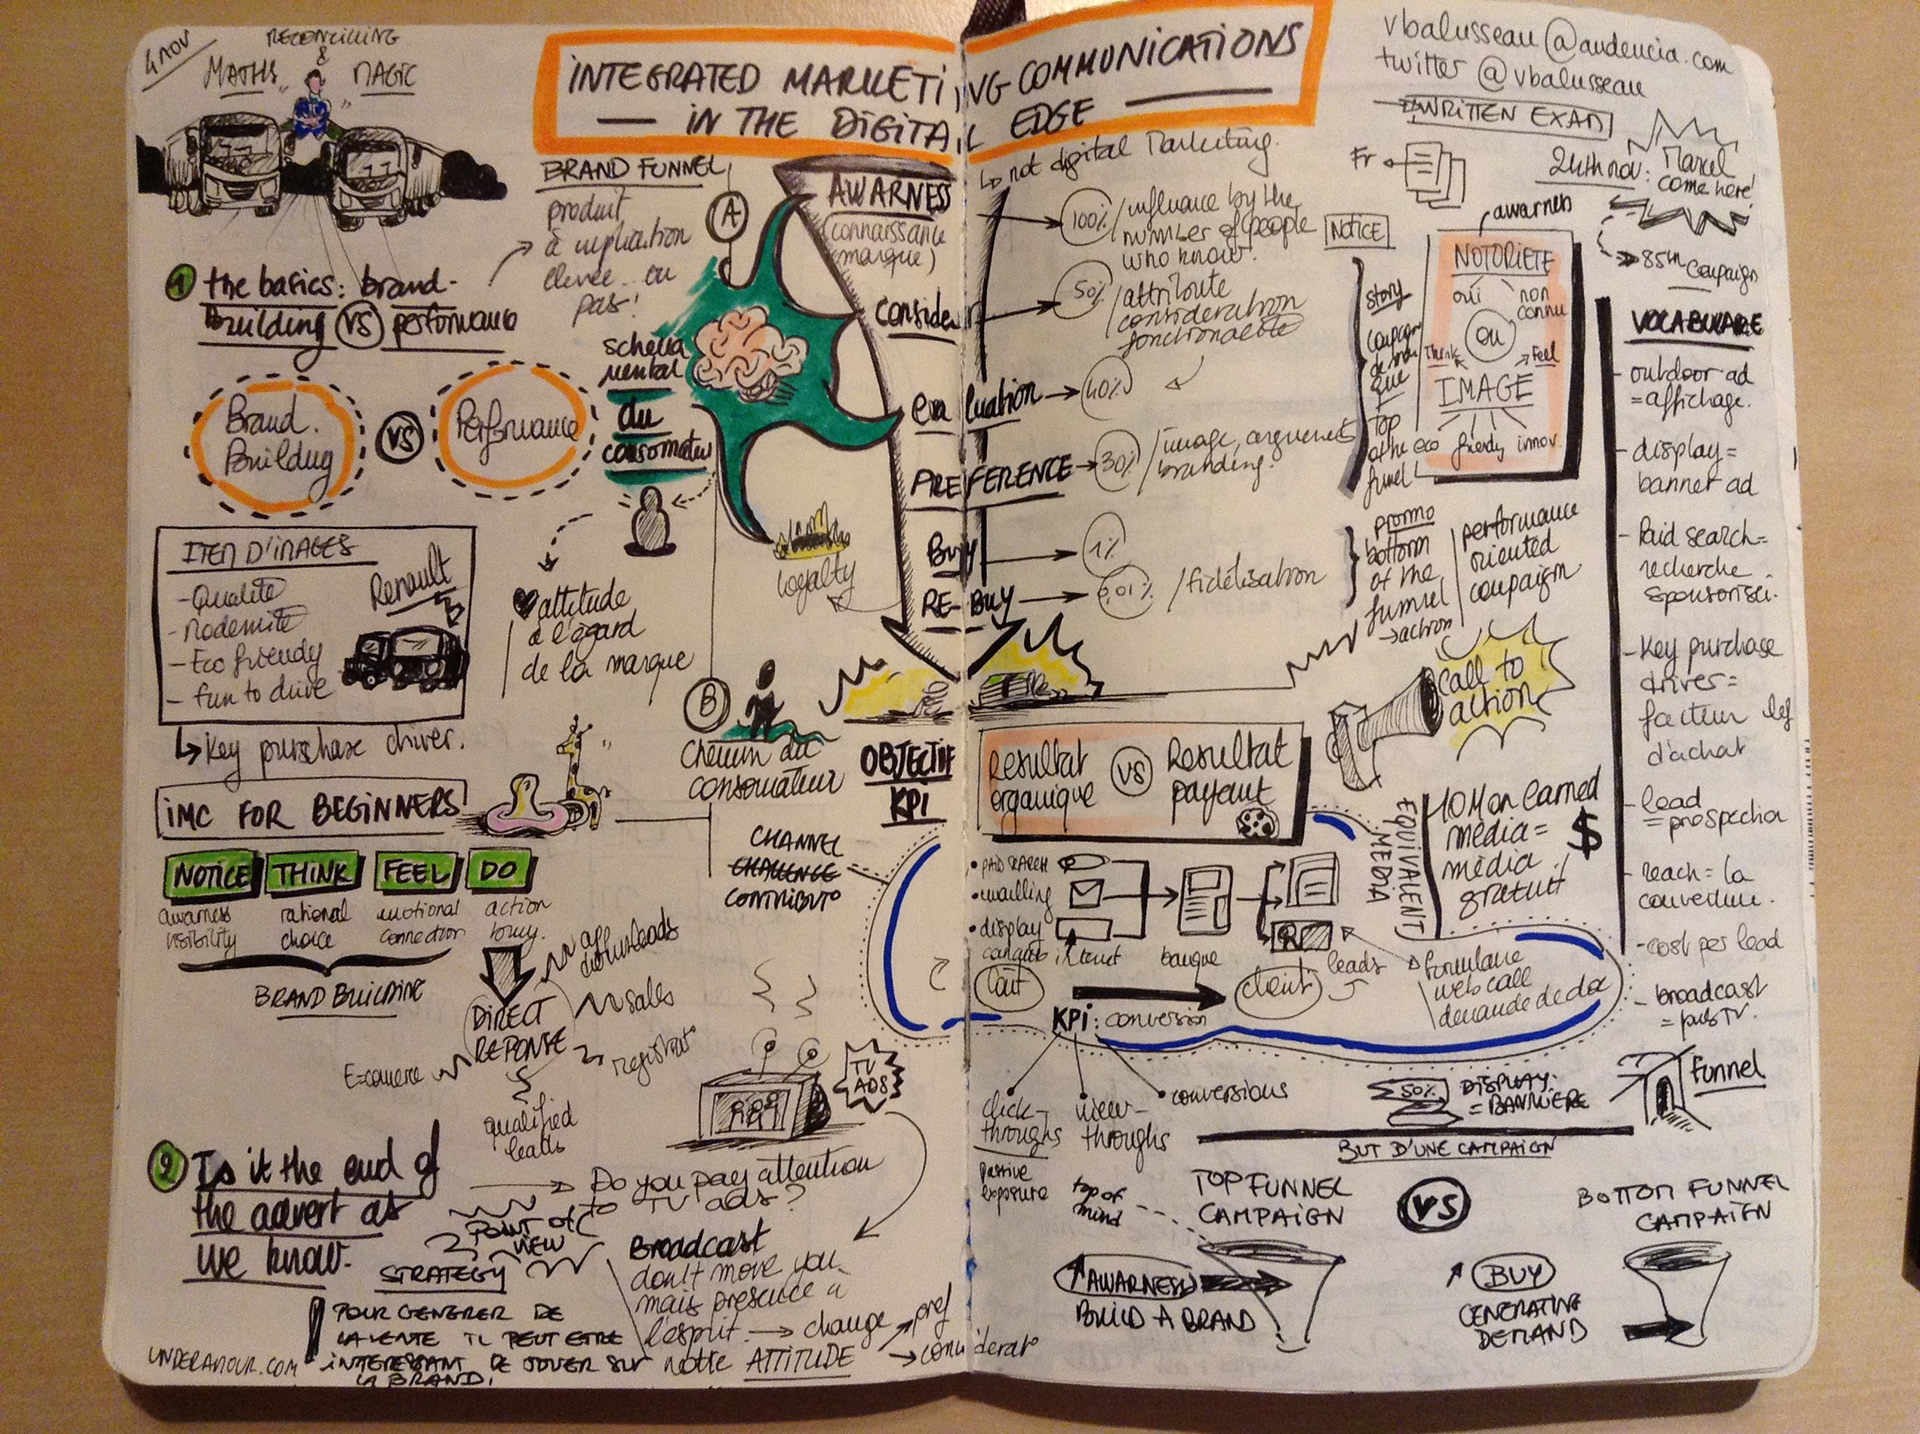 4 NOV
RECONCILING
&
MATHS MAGIC
INTEGRATED MARKETING COMMUNICATIONS
— IN THE DIGITAL EDGE —
↳ not digital Marketing.
vbalusseau@audencia.com
twitter @vbalusseau
→ WRITTEN EXAM
Fr
24th nov:
Marcel
come here!
→ 85m campaign
1 the basics: brand-
Building VS performance
Brand
Building
VS
Performance
BRAND FUNNEL
produit
à implication
élevée ou
pas!
A
schéma
mental
du
consomateur
ITEM D'IMAGES
- Qualité
- Modernité
- Eco friendly
- fun to drive
Renault
↳ Key purchase driver.
attitude
à l'égard
de la marque
loyalty
B
Chemin du
consomateur
AWARNESS
(connaissance
marque)
consider
evaluation
PREFERENCE
Buy
RE-BUY
100% / influence by the
number of people
who know.
50% / attribute
consideration
fonctionnalité
40%
30% / image, arguments
branding.
1%
0,01% / fidélisation
NOTICE
story
Top
of the
funnel
awarness
NOTORIETE
oui non
connu
OU
Think Feel
IMAGE
eco friendly innov.
promo
bottom
of the
funnel
→ action
performance
oriented
campaign
Call to
action
VOCABULAIRE
- outdoor ad
= affichage.
- display =
banner ad
- Paid search =
recherche
sponsorisé.
- Key purchase
driver =
facteur clef
d'achat
- lead
= prospection
- reach = la
couverture.
- cost per lead
- broadcast
= pub TV.
IMC FOR BEGINNERS
NOTICE THINK FEEL DO
awarness
visibility
rational
choice
emotional
connection
action
buy.
BRAND BUILDING
DIRECT
REPONSE
app
downloads
sales
qualified
leads
OBJECTIF
KPI
CHANNEL
CHALLENGE
CONTRIBUTO
Resultat
organique
VS
Resultat
payant
EQUIVALENT
MEDIA
10M on earned
média =
média
gratuit
$
• PAID SEARCH
• mailling
• display
internet
banque
leads
formulaire
web call
demande de doc
cout
client
KPI: conversion
click-
throughs
passive
exposure
view-
throughs
conversions
50%
DISPLAY:
= BANNIÈRE
Funnel
BUT D'UNE CAMPAIGN
TV
ADS
2 Is it the end of
the advert as
we know.
→ Do you pay attention
to TV ads?
POINT OF
VIEW
STRATEGY
POUR GENERER DE
LA VENTE IL PEUT ETRE
INTERESSANT DE JOUER SUR
LA BRAND!
UNDERAMOUR.COM
Broadcast
don't move you
mais présence à
l'esprit. → change
notre ATTITUDE
→ pref
→ considerat°
top of
mind
TOP FUNNEL
CAMPAIGN
VS
BOTTOM FUNNEL
CAMPAIGN
AWARNESS
BUILD A BRAND
BUY
GENERATING
DEMAND